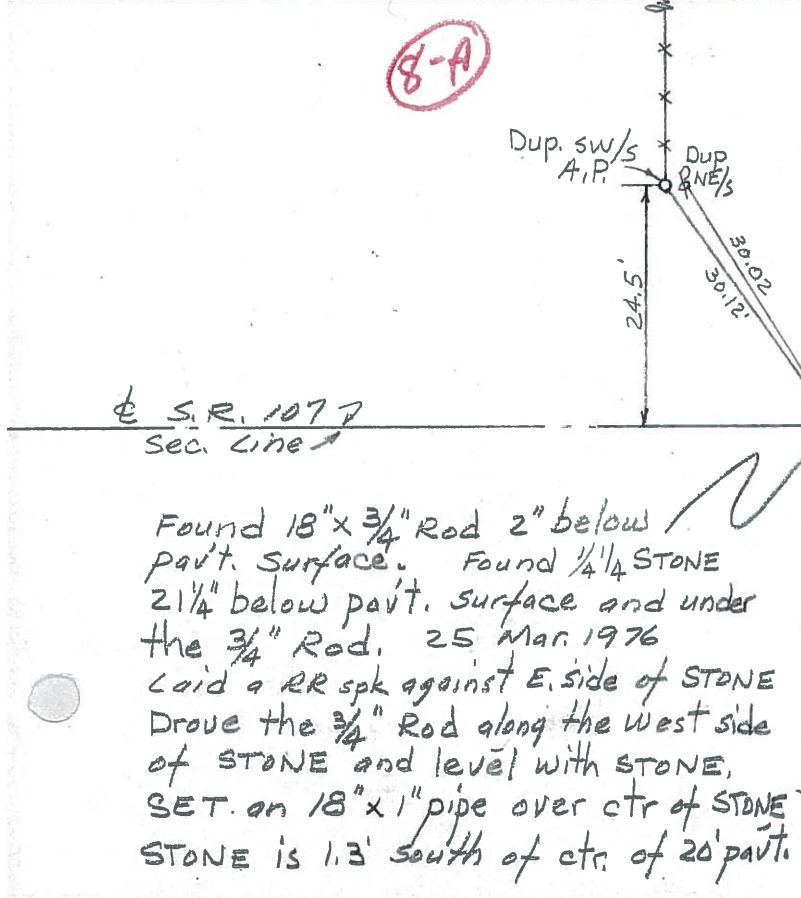 8-A
Dup. SW/S
A.P.
Dup
NE/S
30.02
30.12'
24.5'
℄ S.R. 107
Sec. Line
Found 18"x 3/4" Rod 2" below
pav't. Surface. Found 1/4 1/4 STONE
21 1/4" below pav't. surface and under
the 3/4" Rod. 25 Mar. 1976
Laid a RR spk against E. side of STONE
Drove the 3/4" Rod along the west side
of STONE and level with STONE.
SET an 18"x 1" pipe over ctr of STONE
STONE is 1.3' South of ctr. of 20' pav't.